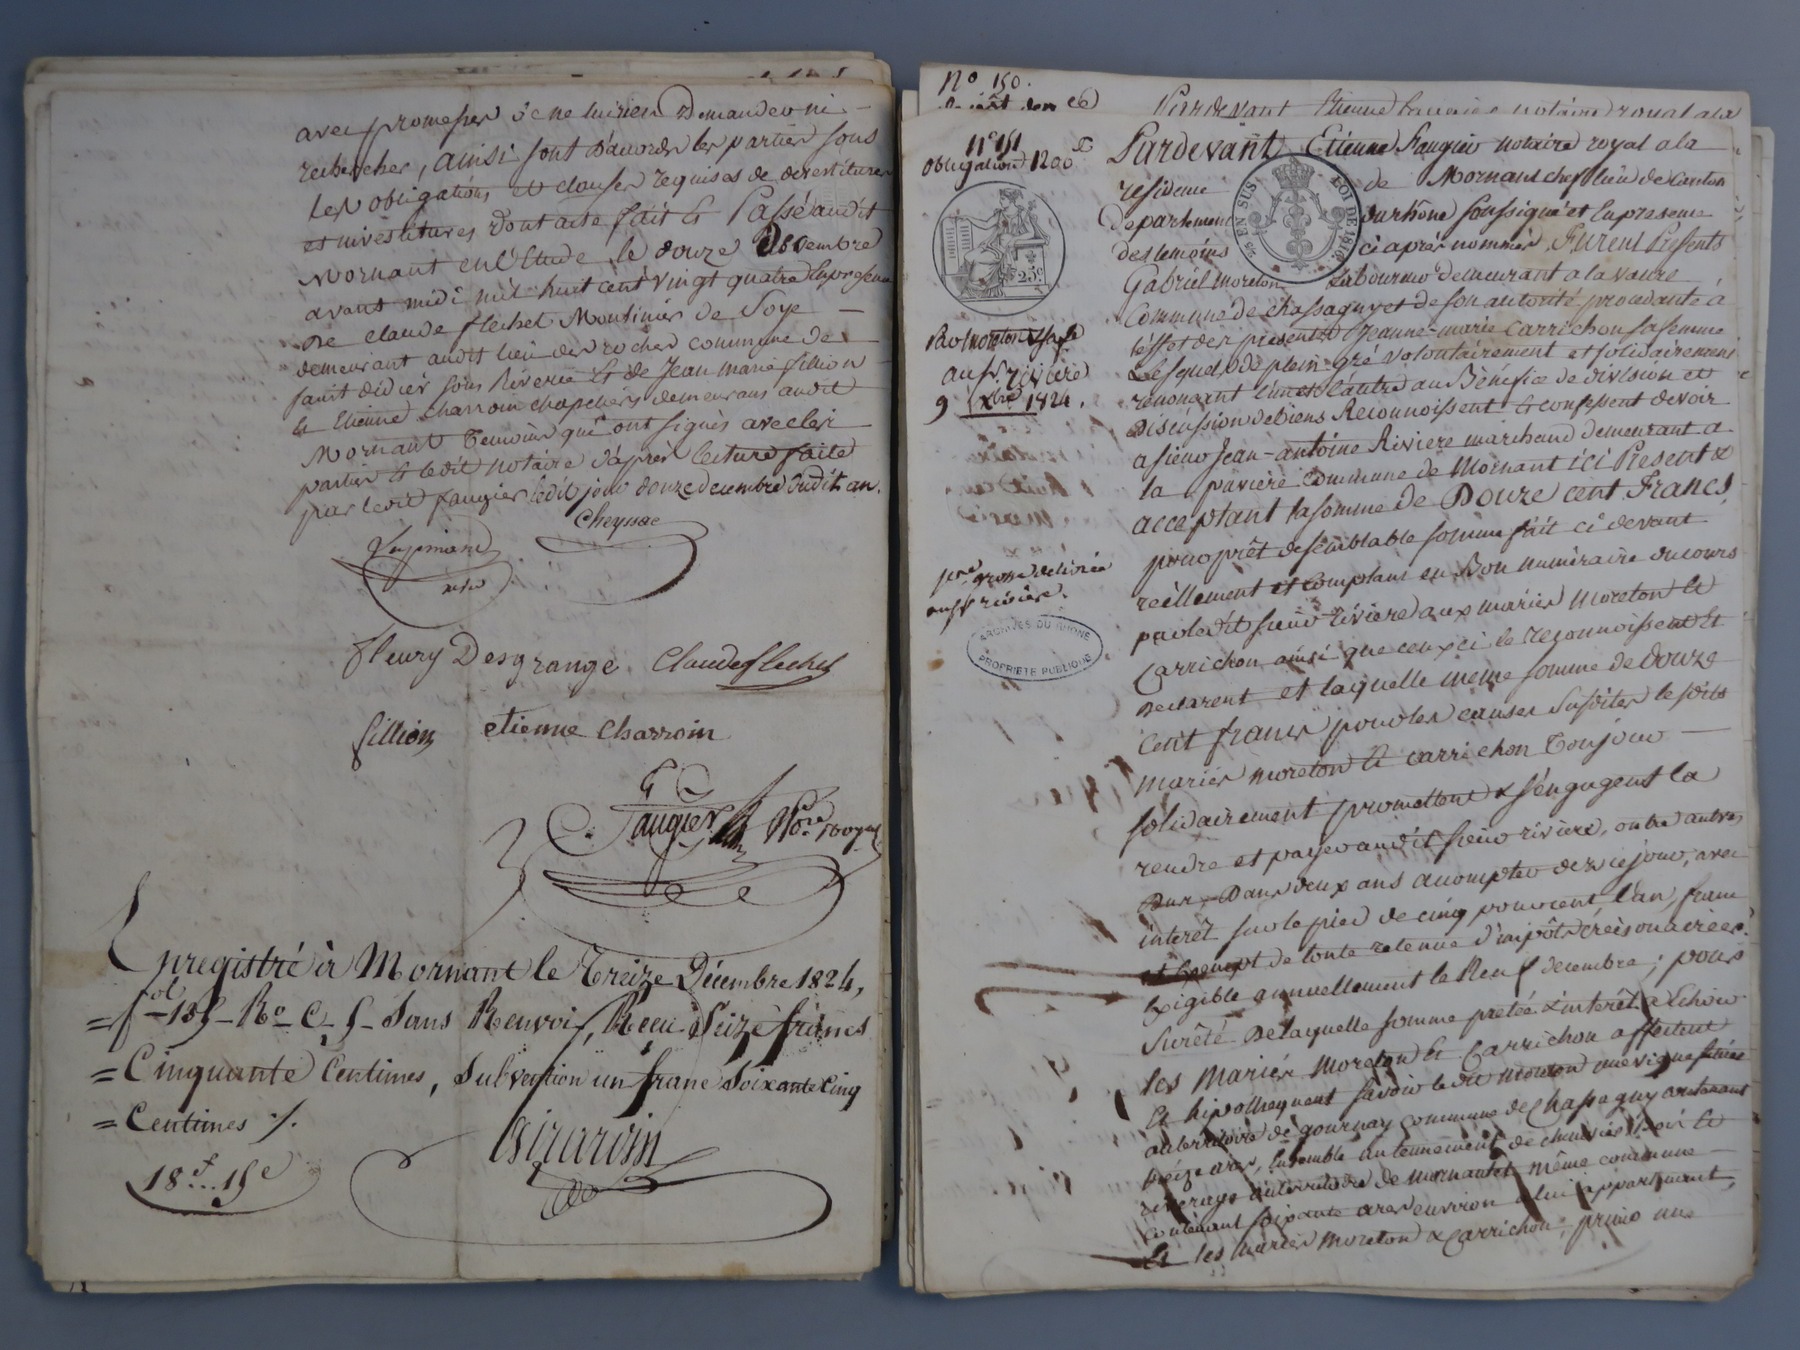 avec promesse de ne lui rien Demander ni
rechercher, ainsi sont D'accorder les parties sous
les obligations et clauses requises de devestitures
et investitures Dont acte fait & Passé audit
Mornant en l'étude le douze Décembre
avant midi mil huit cent vingt quatre En presence
De claude flechet Moulinier de Soye
demeurant audit lieu des rocher commune de
saint didier sous Riverie & de Jean marie fillion
& Etienne charroin chapeliers demeurans audit
Mornant Temoins qui ont signés avec les
parties & ledit notaire d'après lecture faite
par ledit faugier ledit jour douze decembre dudit an.
Cheyssac
fleury Desgrange Claude flechet
fillion etienne charroin
Faugier Nore royal
Enregistré à Mornant le Treize Décembre 1824,
fol 155 Ro C. 5 Sans Renvoi, Reçu Seize francs
= Cinquante Centimes, Subvention un franc Soixante Cinq
= Centimes ./.
Girardin
18f..15c
No 150.
Pardevant Etienne faugier notaire royal a la
No 151
Obligation 1200 f
25 c.
2s EN SUS
LOI DE 1816.
Par Moreton & sa fe
au Sr rivière
9 xbre 1824.
1re grosse delivrée
au sr rivière.
ARCHIVES DU RHÔNE
PROPRIÉTÉ PUBLIQUE
Pardevant Etienne Faugier notaire royal a la
residence de Mornant chef lieu de Canton
departement du rhône soussigné et En presence
des temoins ci après nommés Furent Presents
Gabriel Moreton Laboureur demeurant a la vaure
Commune de Chassagny et de son autorité procedante à
l'effet des presentes Jeanne-marie Carrichon sa femme
Lesquels de plein gré volontairement et solidairement
renonçant l'un et l'autre au Bénéfice de division et
Discussion de biens Reconnoissent & confessent devoir
a sieur Jean-antoine Riviere marchand demeurant a
la pavière Commune de Mornant ici Present &
acceptant la somme de Douze cent Francs,
pour prêt de semblable somme fait ci devant
réellement et comptant en Bon numéraire du cours
par ledit sieur rivière aux mariés moreton &
Carrichon ainsi que ceux ci le reconnoissent &
Declarent et laquelle meme somme de Douze
Cent francs pour les causes susdites lesdits
mariés moreton & carrichon Toujour
solidairement promettent & s'engagent la
rendre et payer audit sieur rivière, ou tre autres
Dans deux ans a compter de ce jour, avec
interêt sur le pied de cinq pour cent l'an, franc
et exempt de toute retenue d'impôts créés ou a créer.
Exigible annuellement le Neuf decembre; pour
sûrêté De laquelle somme pretée & interêt a Echoir
les Mariés Moreton & Carrichon affectent
& hipothequent savoir ledit moreton une vigne située
au territoire de gournay commune de Chassagny contenant
seize ares, Ensemble un tennement de
au territoire de mornantet même commune
contenant soixante ares environ a lui appartenant,
& les mariés Moreton & Carrichon, primo une